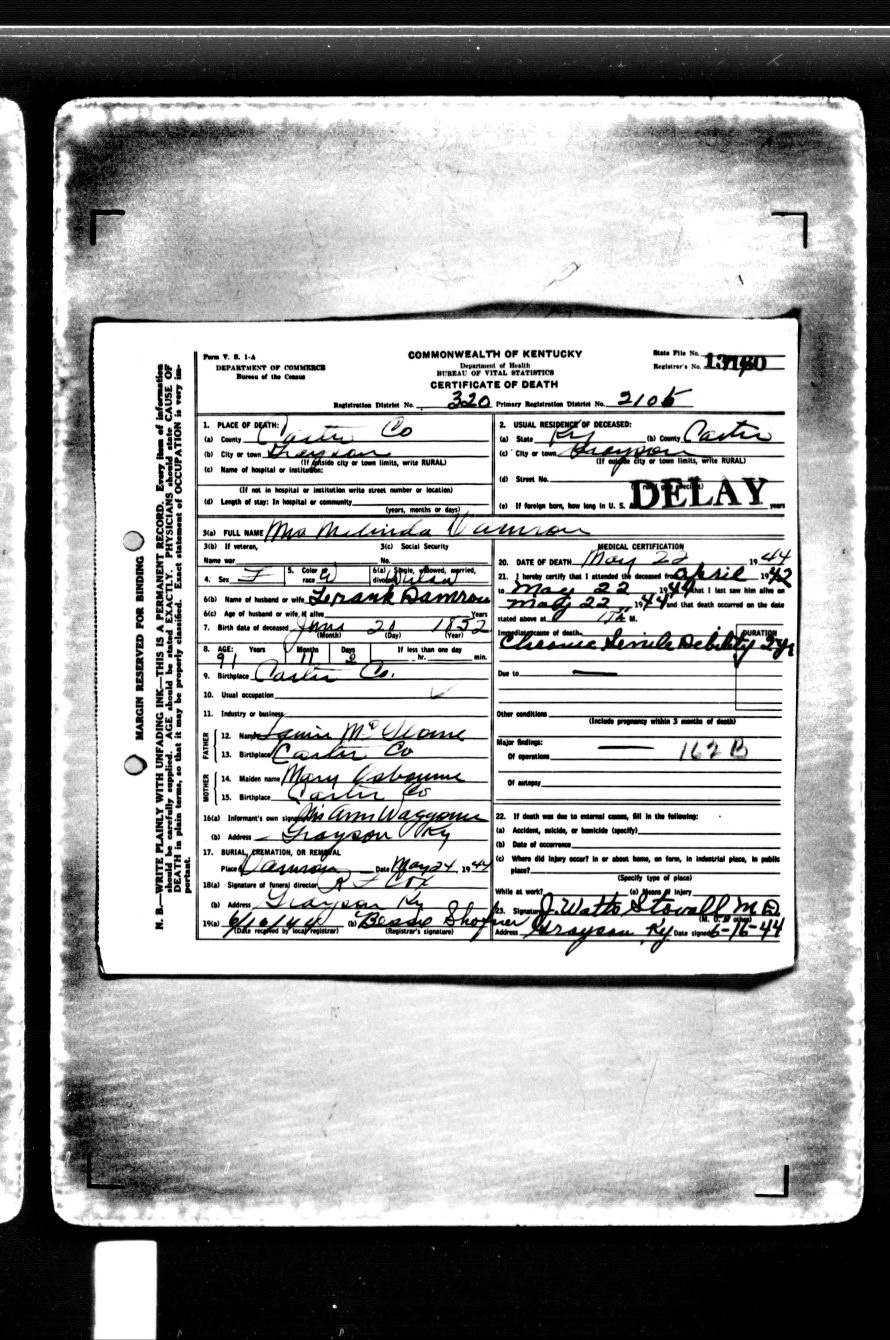 N. B.—WRITE PLAINLY WITH UNFADING INK—THIS IS A PERMANENT RECORD. Every item of information
should be carefully supplied. AGE should be stated EXACTLY. PHYSICIANS should state CAUSE OF
DEATH in plain terms, so that it may be properly classified. Exact statement of OCCUPATION is very im-
portant.
MARGIN RESERVED FOR BINDING
Form V. S. 1-A
DEPARTMENT OF COMMERCE
Bureau of the Census
COMMONWEALTH OF KENTUCKY
Department of Health
BUREAU OF VITAL STATISTICS
CERTIFICATE OF DEATH
State File No.
Registrar's No.
Registration District No. 320 Primary Registration District No. 2105
1. PLACE OF DEATH:
(a) County Carter Co
(b) City or town Grayson
(If outside city or town limits, write RURAL)
(c) Name of hospital or institution:
(If not in hospital or institution write street number or location)
(d) Length of stay: In hospital or community
(years, months or days)
2. USUAL RESIDENCE OF DECEASED:
(a) State Ky (b) County Carter
(c) City or town Grayson
(If outside city or town limits, write RURAL)
(d) Street No.
DELAY
(e) If foreign born, how long in U. S. years
3(a) FULL NAME Mrs Melinda Damron
3(b) If veteran,
Name war
3(c) Social Security
No.
4. Sex F
5. Color
race W
6(a) Single, widowed, married,
divorced
6(b) Name of husband or wife Frank Damron
6(c) Age of husband or wife, if alive Years
7. Birth date of deceased June 20 1852
(Month) (Day) (Year)
8. AGE: Years Months Days If less than one day
91 11 2 hr. min.
9. Birthplace Carter Co.
10. Usual occupation
11. Industry or business
FATHER
12. Name
13. Birthplace Carter Co
MOTHER
14. Maiden name Mary Osbourne
15. Birthplace Carter Co
16(a) Informant's own signature Mrs Ann Waggoner
(b) Address Grayson Ky
17. BURIAL, CREMATION, OR REMOVAL
Place Damron Date May 24 1944
18(a) Signature of funeral director R F Cox
(b) Address Grayson Ky
19(a) 6/16/44 (b) Bessie
(Date received by local registrar) (Registrar's signature)
MEDICAL CERTIFICATION
20. DATE OF DEATH May 22 1944
21. I hereby certify that I attended the deceased from April 1942
to May 22 1944 that I last saw him alive on
May 22 1944 and that death occurred on the date
stated above at M.
Immediate cause of death DURATION
Chronic Senile Debility 2 yr
Due to
Other conditions
(Include pregnancy within 3 months of death)
Major findings:
Of operations 162 B
Of autopsy
22. If death was due to external causes, fill in the following:
(a) Accident, suicide, or homicide (specify)
(b) Date of occurrence
(c) Where did injury occur? In or about home, on farm, in industrial place, in public
place?
(Specify type of place)
While at work? (e) Means of injury
23. Signature J. Watts Stovall M.D.
(M. D. or other)
Address Grayson Ky. Date signed 6-16-44